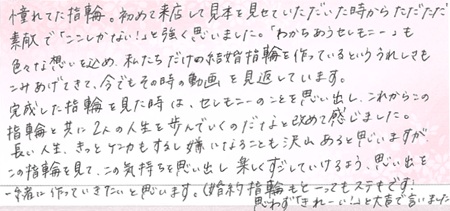 憧れてた指輪。初めて来店して見本を見せていただいた時からただただ
素敵で「ここしかない！」と強く思いました。「わかちあうセレモニー」も
色々な想いを込め、私たちだけの結婚指輪を作っているといううれしさも
こみあげてきて、今でもその時の動画を見返しています。
完成した指輪を見た時は、セレモニーのことを思い出し、これからこの
指輪と共に2人の人生を歩んでいくのだなと改めて感じました。
長い人生、きっとケンカもするし嫌になることも沢山あると思いますが、
この指輪を見て、この気持ちを思い出し楽しくすごしていけるよう、思い出を
一緒に作っていきたいと思います。（婚約指輪もとーってもステキです！
思わず「きれーい！」と大声で言いました